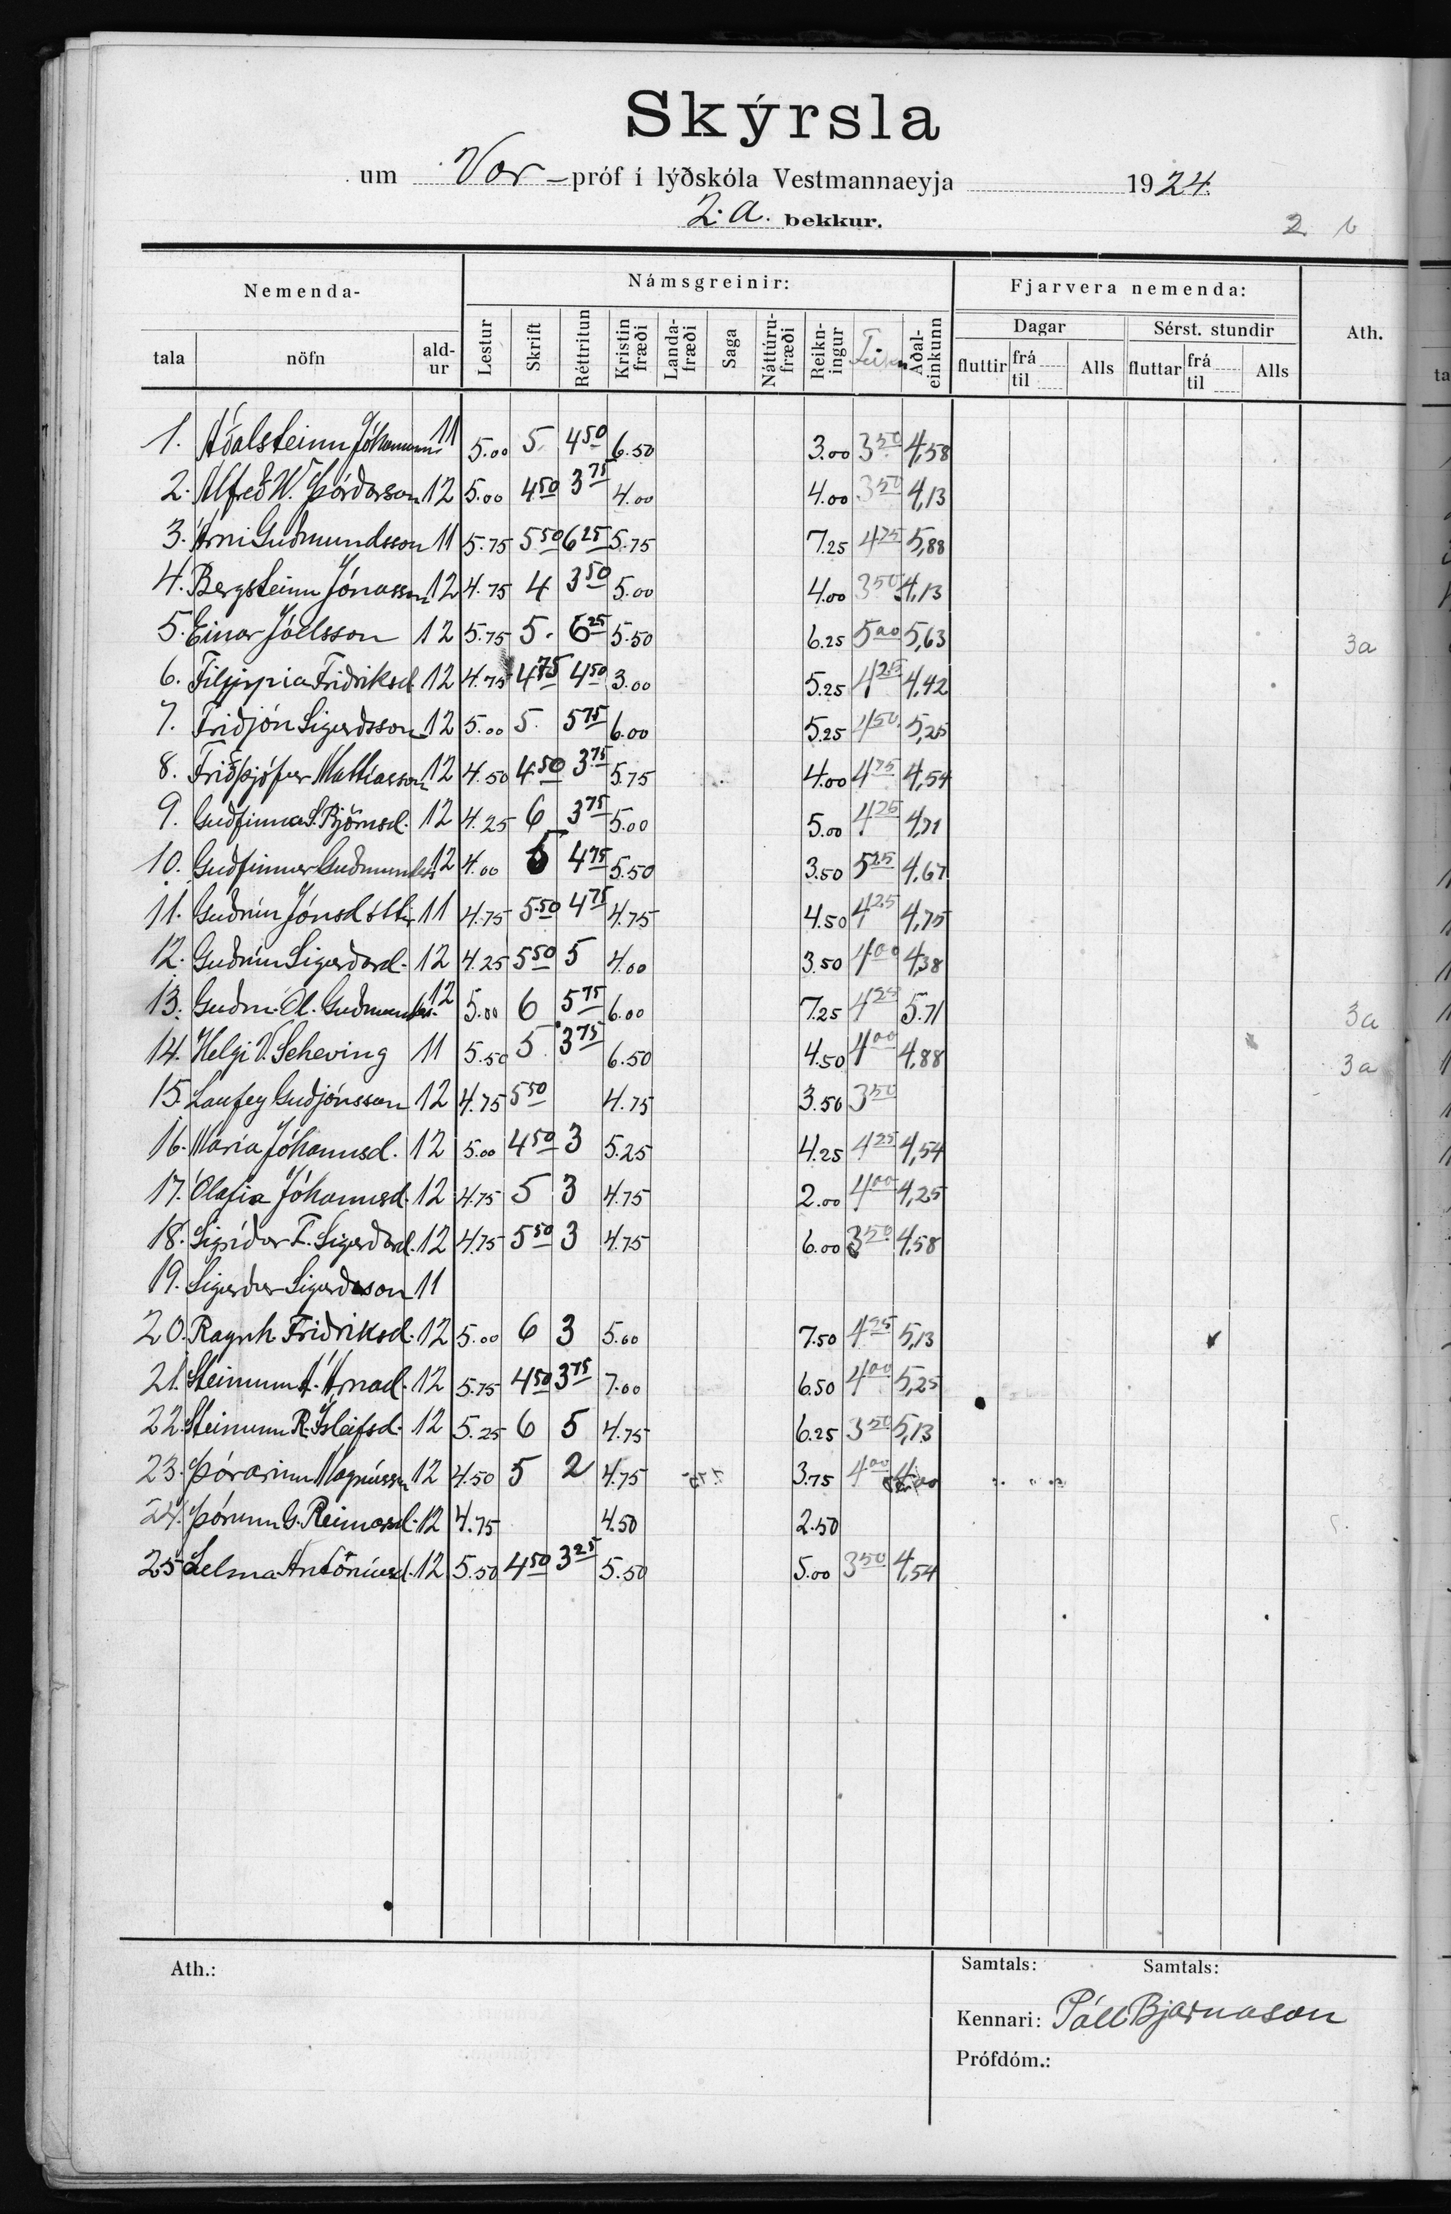 Skýrsla
um Vor-próf í lýðskóla Vestmannaeyja 1924.
2. a. bekkur.
2 b
Nemenda-
Námsgreinir:
Fjarvera nemenda:
Ath.
tala nöfn ald-ur Lestur Skrift Réttritun Kristin fræði Landa-fræði Saga Náttúru-fræði Reikn-ingur Aðal-einkunn
Dagar Sérst. stundir
fluttir frá til Alls fluttar frá til Alls
1. Aðalsteinn Jóhannss. 11 5.00 5 4 50 6.50 3.00 3 50 4,58
2. Alfreð W. Þórðarson 12 5.00 4 50 3 75 4.00 4.00 3 50 4,13
3. Árni Guðmundsson 11 5.75 5 50 6 25 5.75 7.25 4 75 5,88
4. Bergsteinn Jónasson 12 4.75 4 3 50 5.00 4.00 3 50 4,13
5. Einar Jóelsson 12 5.75 5. 6 25 5.50 6.25 5 00 5,63 3a
6. Filippia Friðriksd. 12 4.75 4 75 4 50 3.00 5.25 4 25 4,42
7. Friðjón Sigurðsson 12 5.00 5. 5 75 6.00 5.25 4 50 5,25
8. Friðþjófur Mathiasson 12 4.50 4 50 3 75 5.75 4.00 4 75 4,54
9. Guðfinna S. Björnsd. 12 4.25 6 3 75 5.00 5.00 4 25 4,71
10. Guðfinnur Guðmundss 12 4.00 5 4 75 5.50 3.50 5 25 4,67
11. Guðrún Jónsdóttir 11 4.75 5 50 4 75 4.75 4.50 4 25 4,75
12. Guðrún Sigurðard. 12 4.25 5 50 5 4.00 3.50 4 00 4,38
13. Guðm. Ól. Guðmundss. 12 5.00 6 5 75 6.00 7.25 4 25 5.71 3a
14. Helgi V. Scheving 11 5.50 5 3 75 6.50 4.50 4 00 4,88 3a
15. Laufey Guðjónsson 12 4.75 5 50 4.75 3.50 3 50
16. María Jóhannsd. 12 5.00 4 50 3 5.25 4.25 4 25 4,54
17. Ólafía Jóhannsd. 12 4.75 5 3 4.75 2.00 4 00 4,25
18. Sigríður F. Sigurðard. 12 4.75 5 50 3 4.75 6.00 3 50 4,58
19. Sigurður Sigurðsson 11
20. Ragnh. Friðriksd. 12 5.00 6 3 5.00 7.50 4 25 5,13
21. Steinunn Á. Árnad. 12 5.75 4 50 3 75 7.00 6.50 4 00 5,25
22. Steinunn R. Ísleifsd. 12 5.25 6 5 4.75 6.25 3 50 5,13
23. Þórarinn Magnússon 12 4.50 5 2 4.75 3.75 4 00 4,00
24. Þórunn G. Reimarsd. 12 4.75 4.50 2.50
25 Selma Antoníusd. 12 5.50 4 50 3 25 5.50 5.00 3 50 4,54
Ath.:
Samtals: Samtals:
Kennari: Páll Bjarnason
Prófdóm.: